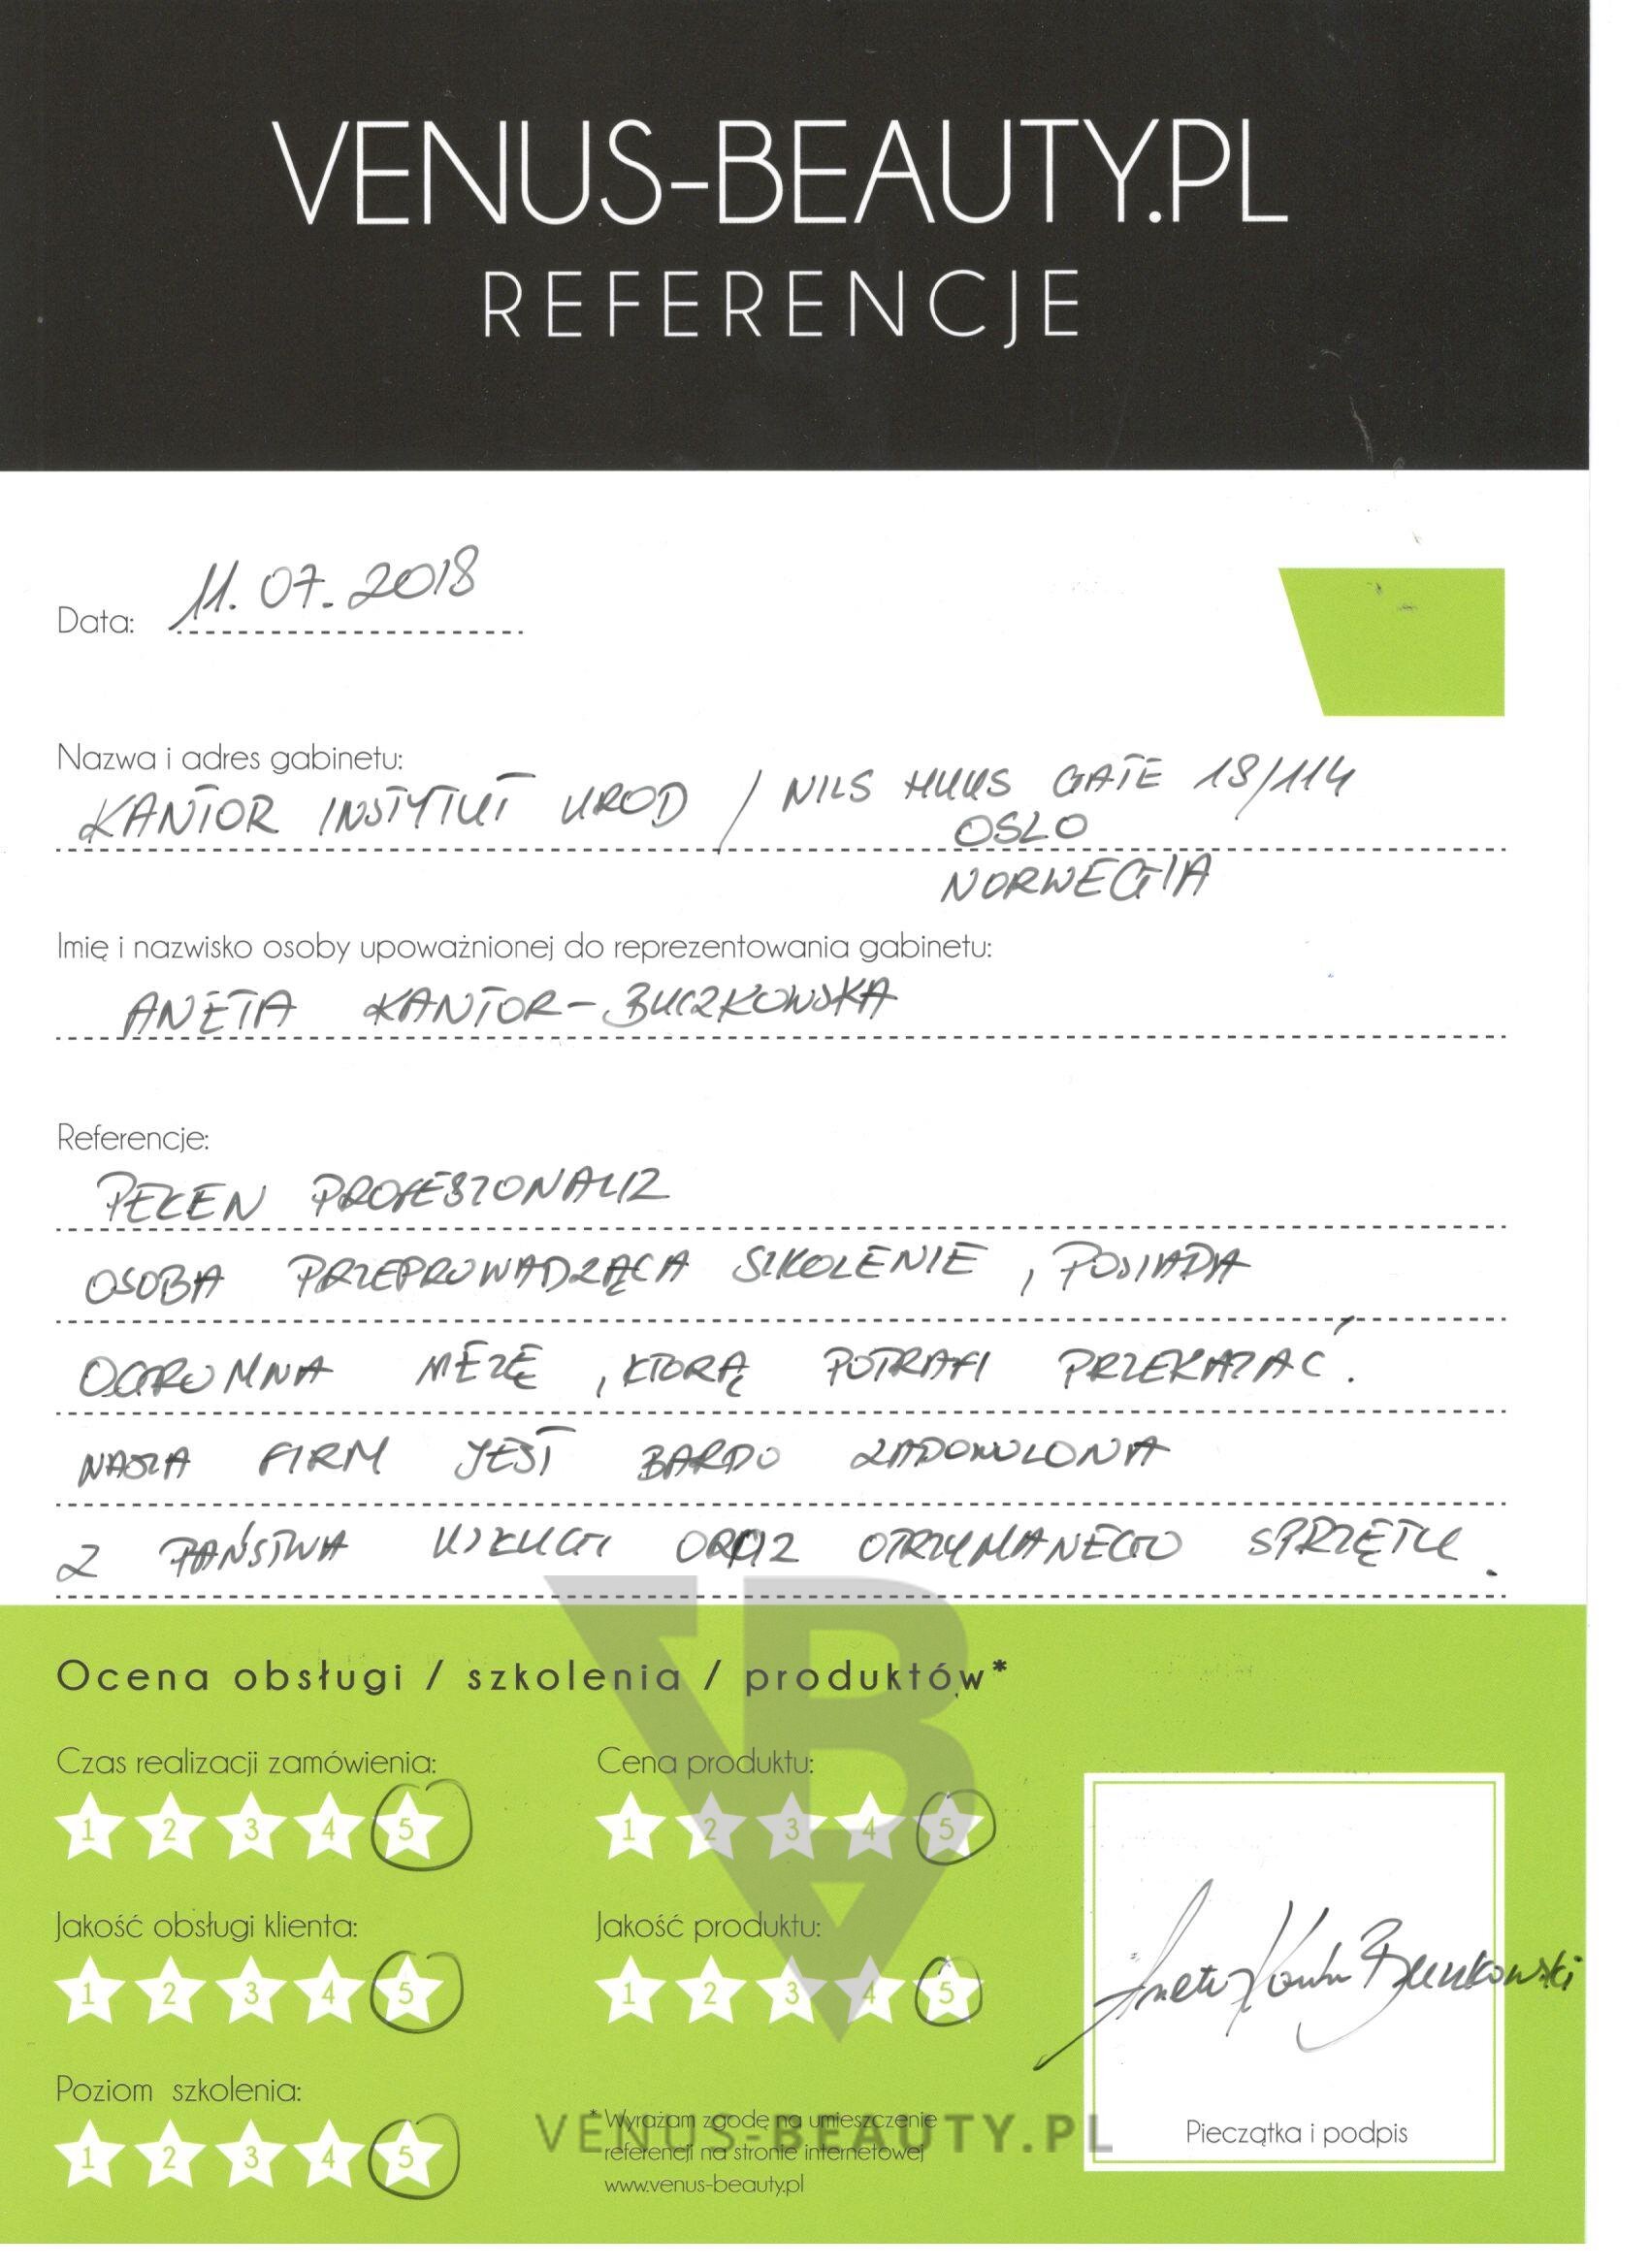 VENUS-BEAUTY.PL
REFERENCJE
Data: 11.07.2018
Nazwa i adres gabinetu:
KANTOR INSTYTUT UROD / NILS HUUS GATE 18/114
OSLO
NORWEGIA
Imię i nazwisko osoby upoważnionej do reprezentowania gabinetu:
ANETA KANTOR-BUCZKOWSKA
Referencje:
PEŁEN PROFESZONALIZ
OSOBA PRZEPROWADZĄCA SZKOLENIE, POSIADA
OGROMNA WIEZĘ, KTORĄ POTRAFI PRZEKAZAĆ.
NASZA FIRM JEST BARDO ZADOWOLONA
Z PAŃSTWA USŁUGI ORAZ OTRZYMANEGO SPRZĘTU.
Ocena obsługi / szkolenia / produktów*
Czas realizacji zamówienia:
1 2 3 4 5
Cena produktu:
1 2 3 4 5
Jakość obsługi klienta:
1 2 3 4 5
Jakość produktu:
1 2 3 4 5
Poziom szkolenia:
1 2 3 4 5
* Wyrażam zgodę na umieszczenie
referencji na stronie internetowej
www.venus-beauty.pl
Aneta Kantor Buczkowski
Pieczątka i podpis
VBA
VENUS-BEAUTY.PL